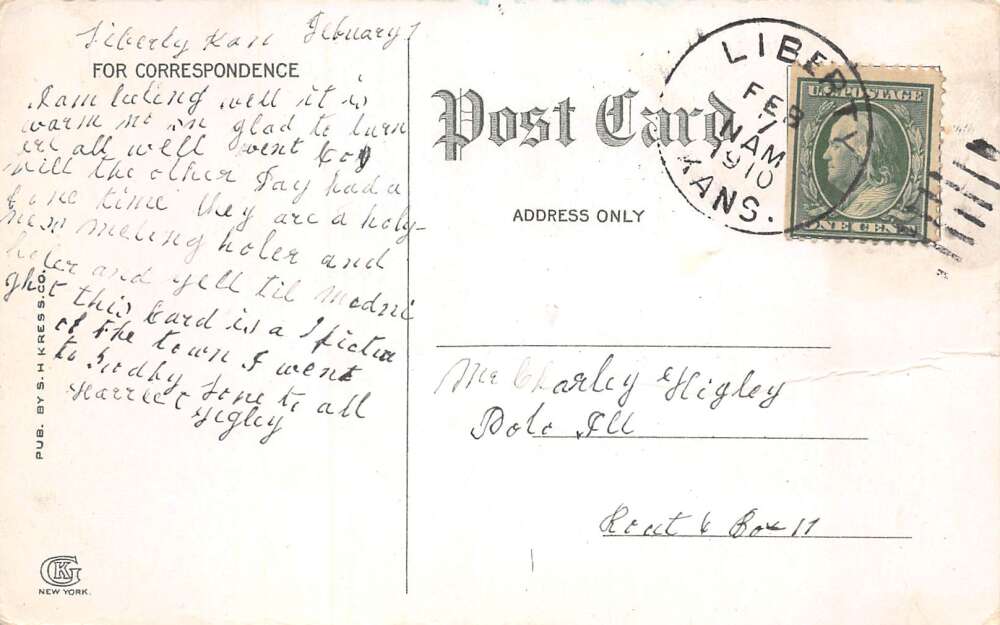 Liberty Kan Febuary 7
FOR CORRESPONDENCE
I am feeling well it is
warm no sn glad to hurn
are all well went to
mill the other Day had a
fine time they are a holy
mess meting holer and
holer and yell til modni
ght this Card is a Pictur
of the town I went
to Goodby Love to all
Harriet
Higley
PUB. BY S. H KRESS & CO.
GKC
NEW YORK.
Post Card
ADDRESS ONLY
LIBERTY
FEB
7
AM
1910
KANS.
U.S. POSTAGE
ONE CENT
Mr Charley Higley
Polo Ill
Rout 6 Box 11